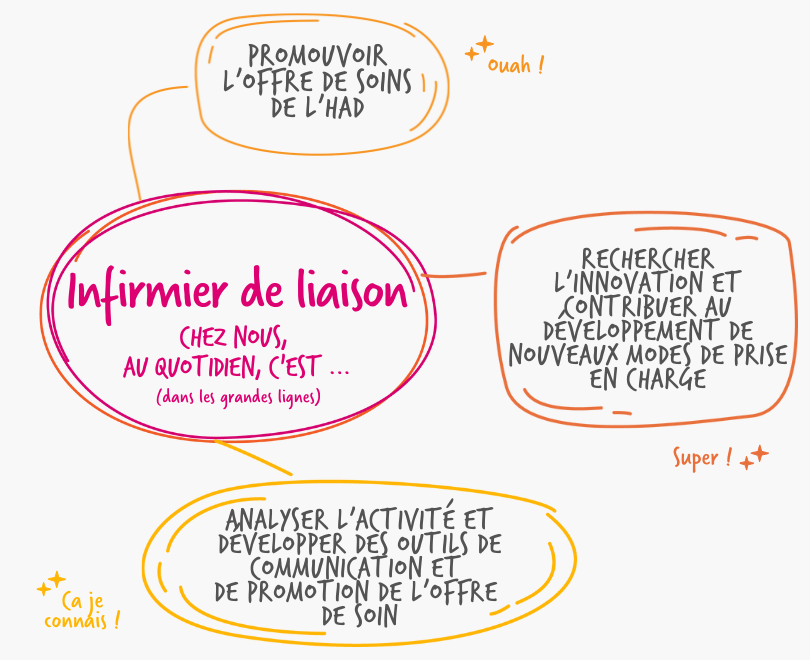 PROMOUVOIR
L'OFFRE DE SOINS
DE L'HAD
ouah !
Infirmier de liaison
CHEZ NOUS,
AU QUOTIDIEN, C'EST ...
(dans les grandes lignes)
RECHERCHER
L'INNOVATION ET
CONTRIBUER AU
DÉVELOPPEMENT DE
NOUVEAUX MODES DE PRISE
EN CHARGE
Super !
ANALYSER L'ACTIVITÉ ET
DÉVELOPPER DES OUTILS DE
COMMUNICATION ET
DE PROMOTION DE L'OFFRE
DE SOIN
Ça je
connais !